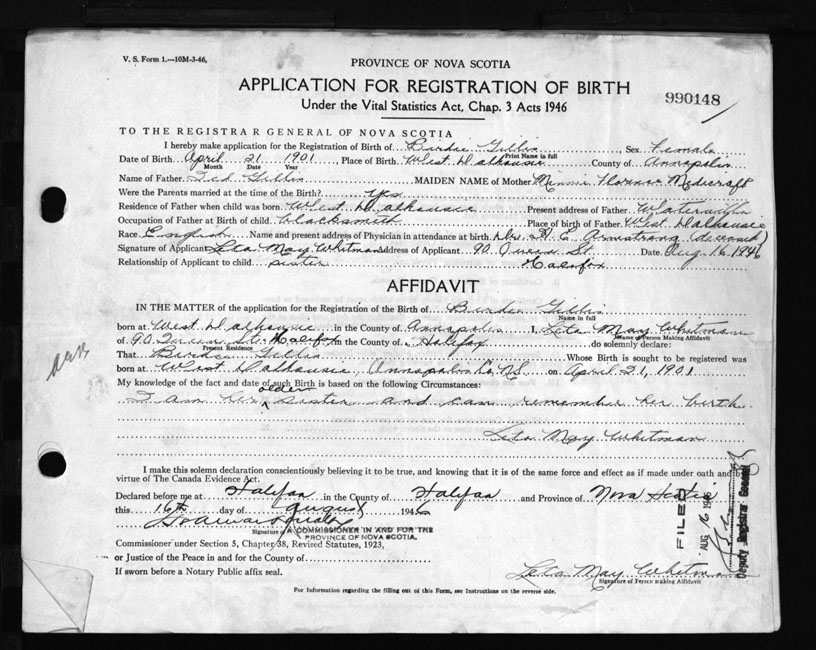 V. S. Form 1.—10M-3-46,
PROVINCE OF NOVA SCOTIA
APPLICATION FOR REGISTRATION OF BIRTH
Under the Vital Statistics Act, Chap. 3 Acts 1946
990148
TO THE REGISTRAR GENERAL OF NOVA SCOTIA
I hereby make application for the Registration of Birth of Birdie Gillis, Sex Female
Print Name in full
Date of Birth April 21 1901, Place of Birth West Dalhousie County of Annapolis
Month Date Year
Name of Father Ted Gillis MAIDEN NAME of Mother Minnie Florence Medicraft
Were the Parents married at the time of the Birth? Yes
Residence of Father when child was born West Dalhousie Present address of Father
Occupation of Father at Birth of child blacksmith Place of birth of Father West Dalhousie
Race English Name and present address of Physician in attendance at birth Dr. E. Armstrong (deceased)
Signature of Applicant Leta May Whitman Address of Applicant 90 Queen St. Date Aug. 16 1946
Relationship of Applicant to child sister Halifax
AFFIDAVIT
IN THE MATTER of the application for the Registration of the Birth of Birdie Gillis
Name in full
born at West Dalhousie in the County of Annapolis I, Leta May Whitman
Name of Person Making Affidavit
of 90 Queen St. Halifax in the County of Halifax do solemnly declare:
Present Residence
That Birdie Gillis Whose Birth is sought to be registered was
born at West Dalhousie, Annapolis Co. N.S. on April 21, 1901
My knowledge of the fact and date of such Birth is based on the following Circumstances:
I am her older sister and can remember her birth.
Leta May Whitman
I make this solemn declaration conscientiously believing it to be true, and knowing that it is of the same force and effect as if made under oath and by
virtue of The Canada Evidence Act.
Declared before me at Halifax in the County of Halifax and Province of Nova Scotia
this 16th day of August 1946
Signature
A COMMISSIONER IN AND FOR THE
PROVINCE OF NOVA SCOTIA.
Commissioner under Section 5, Chapter 38, Revised Statutes, 1923,
or Justice of the Peace in and for the County of
If sworn before a Notary Public affix seal.
Leta May Whitman
Signature of Person making Affidavit
For Information regarding the filling out of this Form, see Instructions on the reverse side.
FILED
AUG 16 1946
Deputy Registrar General